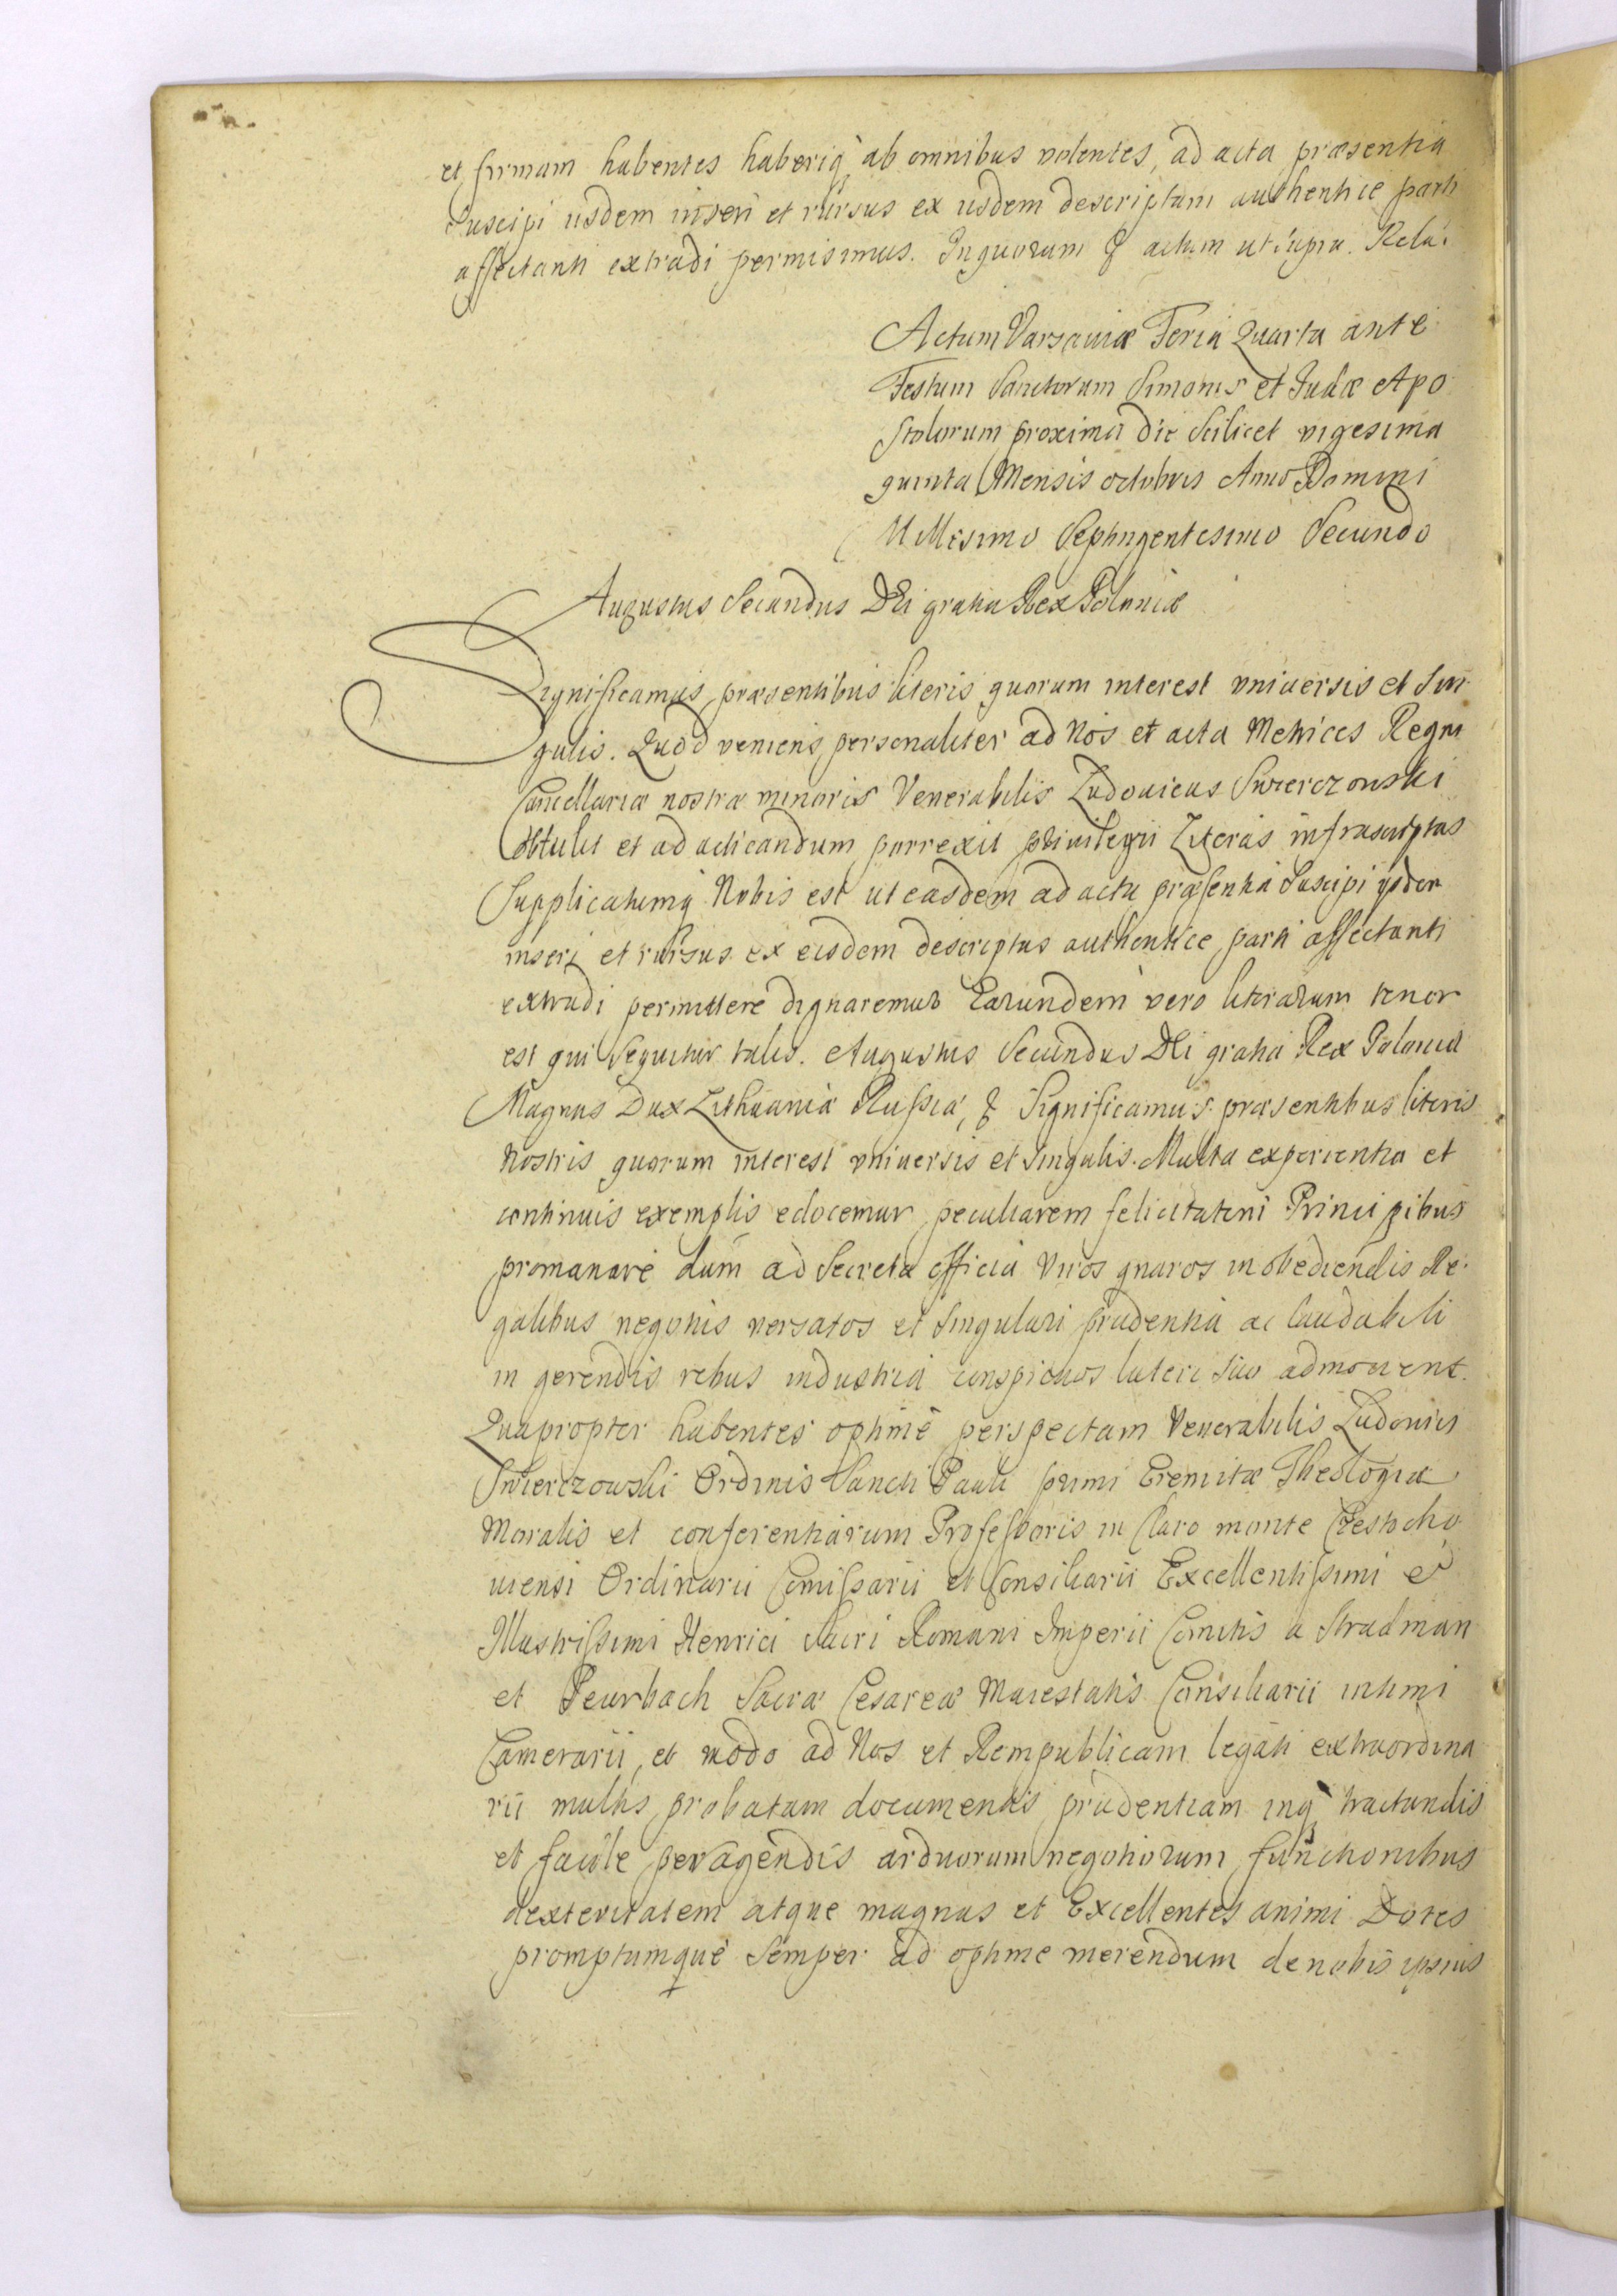 et firmam habentes haberiq; ab omnibus volentes, ad acta præsentia
suscipi iisdem inseri et rursus ex iisdem descriptam authentice parti
affectanti extradi permisimus. In quorum & actum ut supra. Rela:
Actum Varsaviæ Feria Quarta ante
Festum Sanctorum Simonis et Judæ Apo
stolorum proxima die Scilicet vigesima
quinta Mensis octobris Anno Domini
Millesimo Septingentesimo Secundo
Augustus Secundus DEi gratia Rex Poloniæ
Significamus præsentibus literis quorum interest vniuersis et Sin
gulis. Quod veniens personaliter ad Nos et acta Metrices Regni
Cancellariæ nostræ minoris Venerabilis Ludouicus Swierczowski
obtulit et ad acticandum porrexit priuilegii Literas infrascriptas
Supplicatumq; Nobis est ut easdem ad acta præsentia Suscipi ysdem
inseri et rursus ex eisdem descriptas authentice parti affectanti
extradi permittere dignaremur Earundem vero literarum tenor
est qui Sequitur talis. Augustus Secundus DEi gratia Rex Poloniæ
Magnus Dux Lithuaniæ Russiæ, & Significamus præsentibus literis
Nostris quorum interest vniuersis et Singulis. Multa experientia et
continuis exemplis edocemur peculiarem felicitatem Principibus
promanare dum ad Secreta officia Viros gnaros in obediendis Re
galibus negotiis versatos et Singulari prudentia ac laudabili
in gerendis rebus industria conspicuos lateri suo admouent.
Quapropter habentes optime perspectam Venerabilis Ludouici
Swierczowski Ordinis Sancti Pauli primi Eremitæ Theologiæ
Moralis et conferentiarum Professoris in Claro monte Czestocho
uiensi Ordinarii Comissarii et Consiliarii Excellentissimi et
Illustrissimi Henrici Sacri Romani Imperii Comitis a Stradman
et Peurbach Sacræ Cesareæ Maiestatis Consiliarii intimi
Camerarii, et modo ad Nos et Rempublicam legati extraordina
rii multis probatam documentis prudentiam inq; tractandis
et facile peragendis arduorum negotiorum functionibus
dexteritatem atque magnas et Excellentes animi Dotes
promptumque Semper ad optime merendum de nobis ipsius